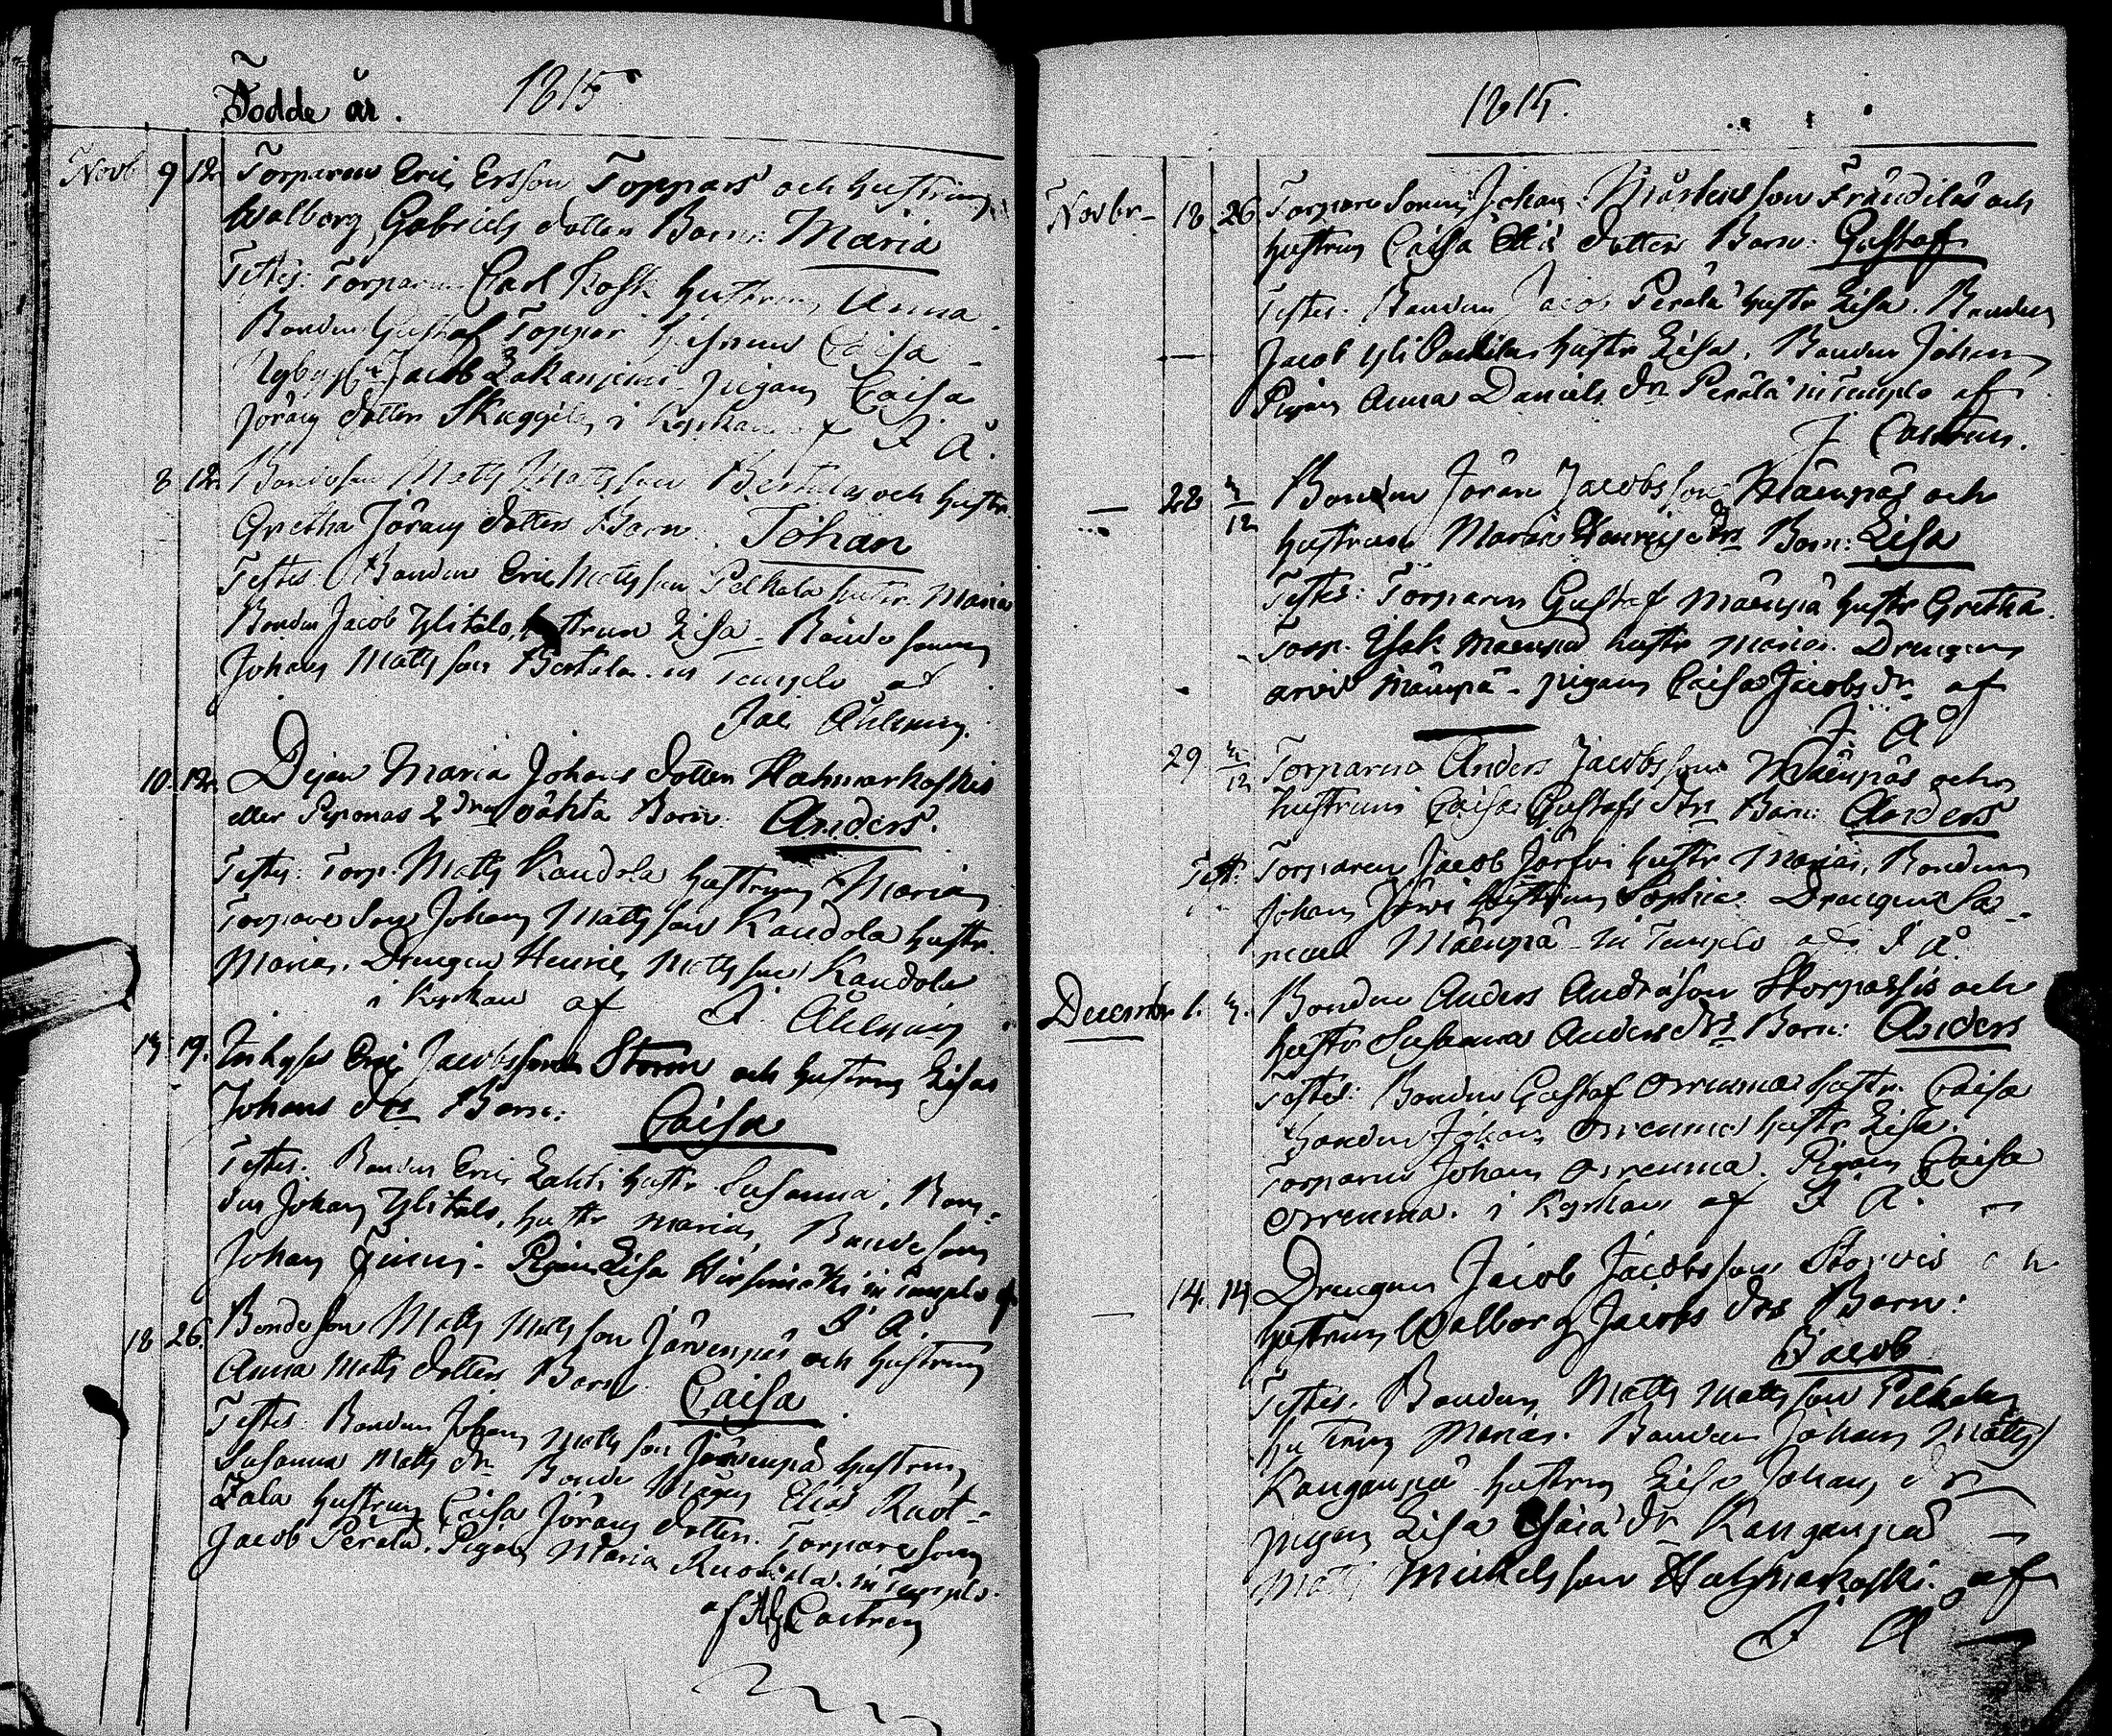 Födde år. 1815
Novb 9 12 Torparens Eric Ersson Toppars och hustrun
Walborg Gabriels dotters Barn: Maria
Testes: Torparen Carl Kosk hustrun Anna.
Bonden Gustaf Toppar hustrun Caisa
Jacob pigan Caisa
Jörans dotter i Kyrkan af I Å.
8 12 Bondeson Matts Mattsson Bertulas och hustr
Gretha Jörans dotters Barn. Johan
Testes: Bonden Eric Mattsson Pelkola hustr. Maria
Bonden Jacob Ylitalo, hustrun Lisa - Bondesonen
Johan Mattsson Bertula. in Templo af
Jac Åhlming.
10. 12. Pigan Maria Johans dotter Hatmarkoskis
eller Piponas 2dra oäkta Barn. Anders.
Testes: Torp. Matts Kandola hustrun Maria
Torpare Son Johan Mattsson Kandola hustr.
Maria. Drengen Henric Mattsson Kandola
i Kyrkan af I. Åhlming
19. Inhyses Eric Jacobssons Storm och hustrun Lisas
Johans drs Barn: Caisa
Testes. Bonden Eric Lahti hustr. Susanna, Bon-
den Johan Ylitalo, hustr Maria, Bondeson
Johan Finni. Pigan Lisa in Templo af
I Å.
18 26. Bondeson Matts Mattsson Järvenpäs och hustrun
Anna Matts dotters Barn Caisa
Testes: Bonden Johan Mattsson Järvenpä hustrun
Susanna Matts dr Bonde Elias Ruot-
sala hustrun Caisa Jörans dotter. Torparesonen
Jacob Perälä. Pigan Maria Ruotsala. in Templo.
af Castren
1815.
Novbr 18. 26 Torpare Sonens Johan Mårtensson Frändiläs och
hustrun Caisa dotters Barn: Gustaf
Testes: Bonden Jacob Perälä hustr Lisa. Bonden
Jacob hustr Lisa. Bonden Johan
Pigan Anna Daniels dr Perälä in Templo af
J Castren.
— 28 3/12 Bonden Jöran Jacobssons Mäenpäs och
hustruns Maria Henrics drs Barn: Lisa
Testes: Torparen Gustaf Mäenpä hustr Gretha.
Torp. Isak Mäenpä hustr Maria. Drengen
Arvid Mäenpä - pigan Caisa Jacobs dr af
I Å
29 3/12 Torparens Anders Jacobssons Mäenpäs och
hustruns Caisa Gustafs drs Barn: Anders
Test: Torparen Jacob Järfvi hustr Maria, Bonden
Johan Järvi hustrun Sophia. Drengen Sa-
muel Mäenpä in Templo af I Å.
December 1. 3. Bonden Anders Andrsson Storpassis och
hustr Susanna Anders drs Barn: Anders
Testes: Bonden Gustaf Orrenma hustr. Caisa
Bonden Johan Orrenma hustr Lisa.
Torparen Johan Orrenma. Pigan Caisa
Orrenma. i Kyrkan af I Å.
— 14. 14 Drengen Jacob Jacobssons och
hustrun Walborg Jacobs drs Barn:
Jacob
Testes. Bonden Matts Mattsson Pelkola
hustrun Maria. Bonden Johan Matts
Kangenpä hustrun Lisa Johans dr
pigan Lisa Esaia dr Kangenpä
Matts Mickelsson af
I Å